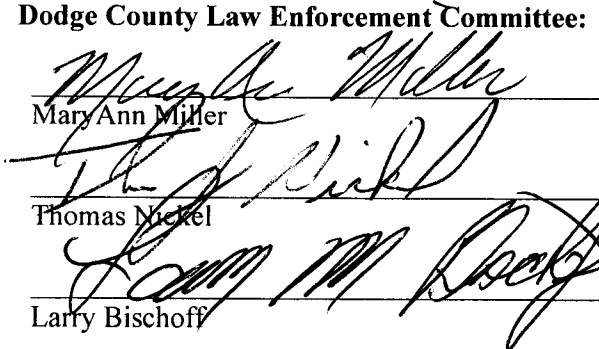 Dodge County Law Enforcement Committee:
MaryAnn Miller
MaryAnn Miller
Thomas Nickel
Larry M
Larry Bischoff